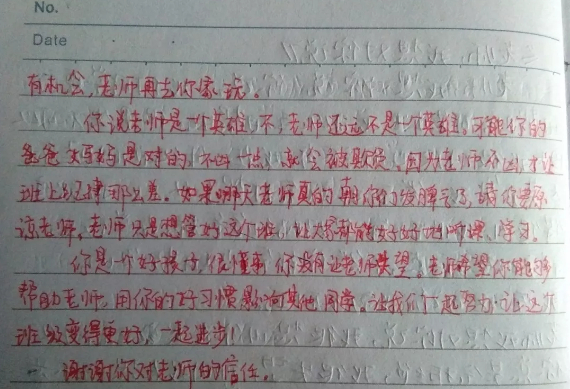 No.
Date
有机会,老师再去你家玩。
你说老师是一个英雄,不,老师还远不是一个英雄。可能你的
爸爸妈妈是对的,不凶一点,就会被欺侮。因为老师不凶,才让
班上纪律那么差。如果哪天老师真的朝你们发脾气了,请你要原
谅老师,老师只是想管好这个班,让大家都能好好地听课、学习。
你是一个好孩子,很懂事,你没有让老师失望。老师希望你能够
帮助老师,用你的好习惯影响其他同学。让我们一起努力,让这个
班级变得更好,一起进步!
谢谢你对老师的信任。